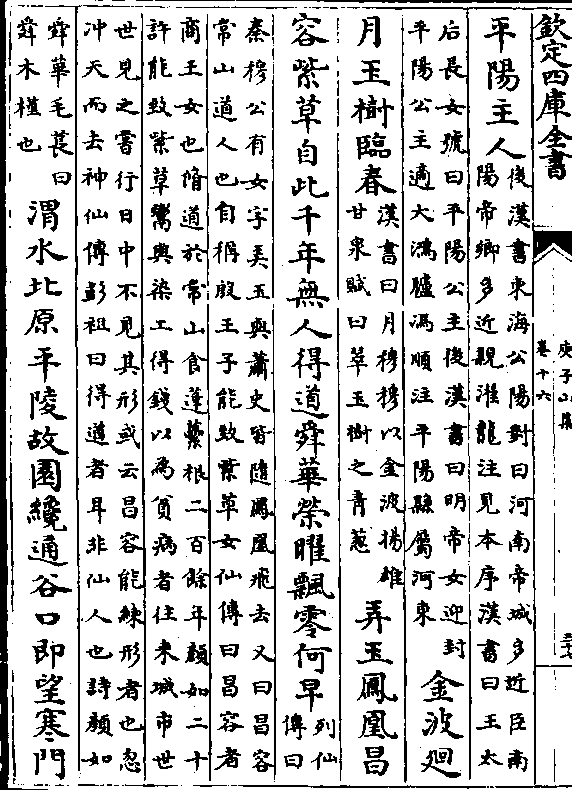 欽定四庫全書
庾子山集
卷十六
平陽主人
後漢書東海公陽對曰河南帝城多近臣南
陽帝鄉多近親濯龍注見本序漢書曰王太
后長女號曰平陽公主後漢書曰明帝女迎封
平陽公主適大鴻臚馮順注平陽縣屬河東
金波廻
月玉樹臨春
漢書曰月穆穆以金波揚雄
甘泉賦曰萃玉樹之青葱
弄玉鳳凰昌
容紫草自此千年無人得道舜華榮曜飄零何早
列仙
傳曰
秦穆公有女字弄玉與蕭史皆隨鳳凰飛去又曰昌容
常山道人也自稱殷王子能致紫草女仙傳曰昌容者
商王女也脩道於常山食蓬虆根二百餘年顔如二十
許能致紫草鬻與染工得錢以為貧病者往來城市世
世見之書行日中不見其形或云昌容能練形者也忽
冲天而去神仙傳彭祖曰得道者耳非仙人也詩顔如
舜華毛萇曰
舜木槿也
渭水北原平陵故園纔通谷口即望寒門